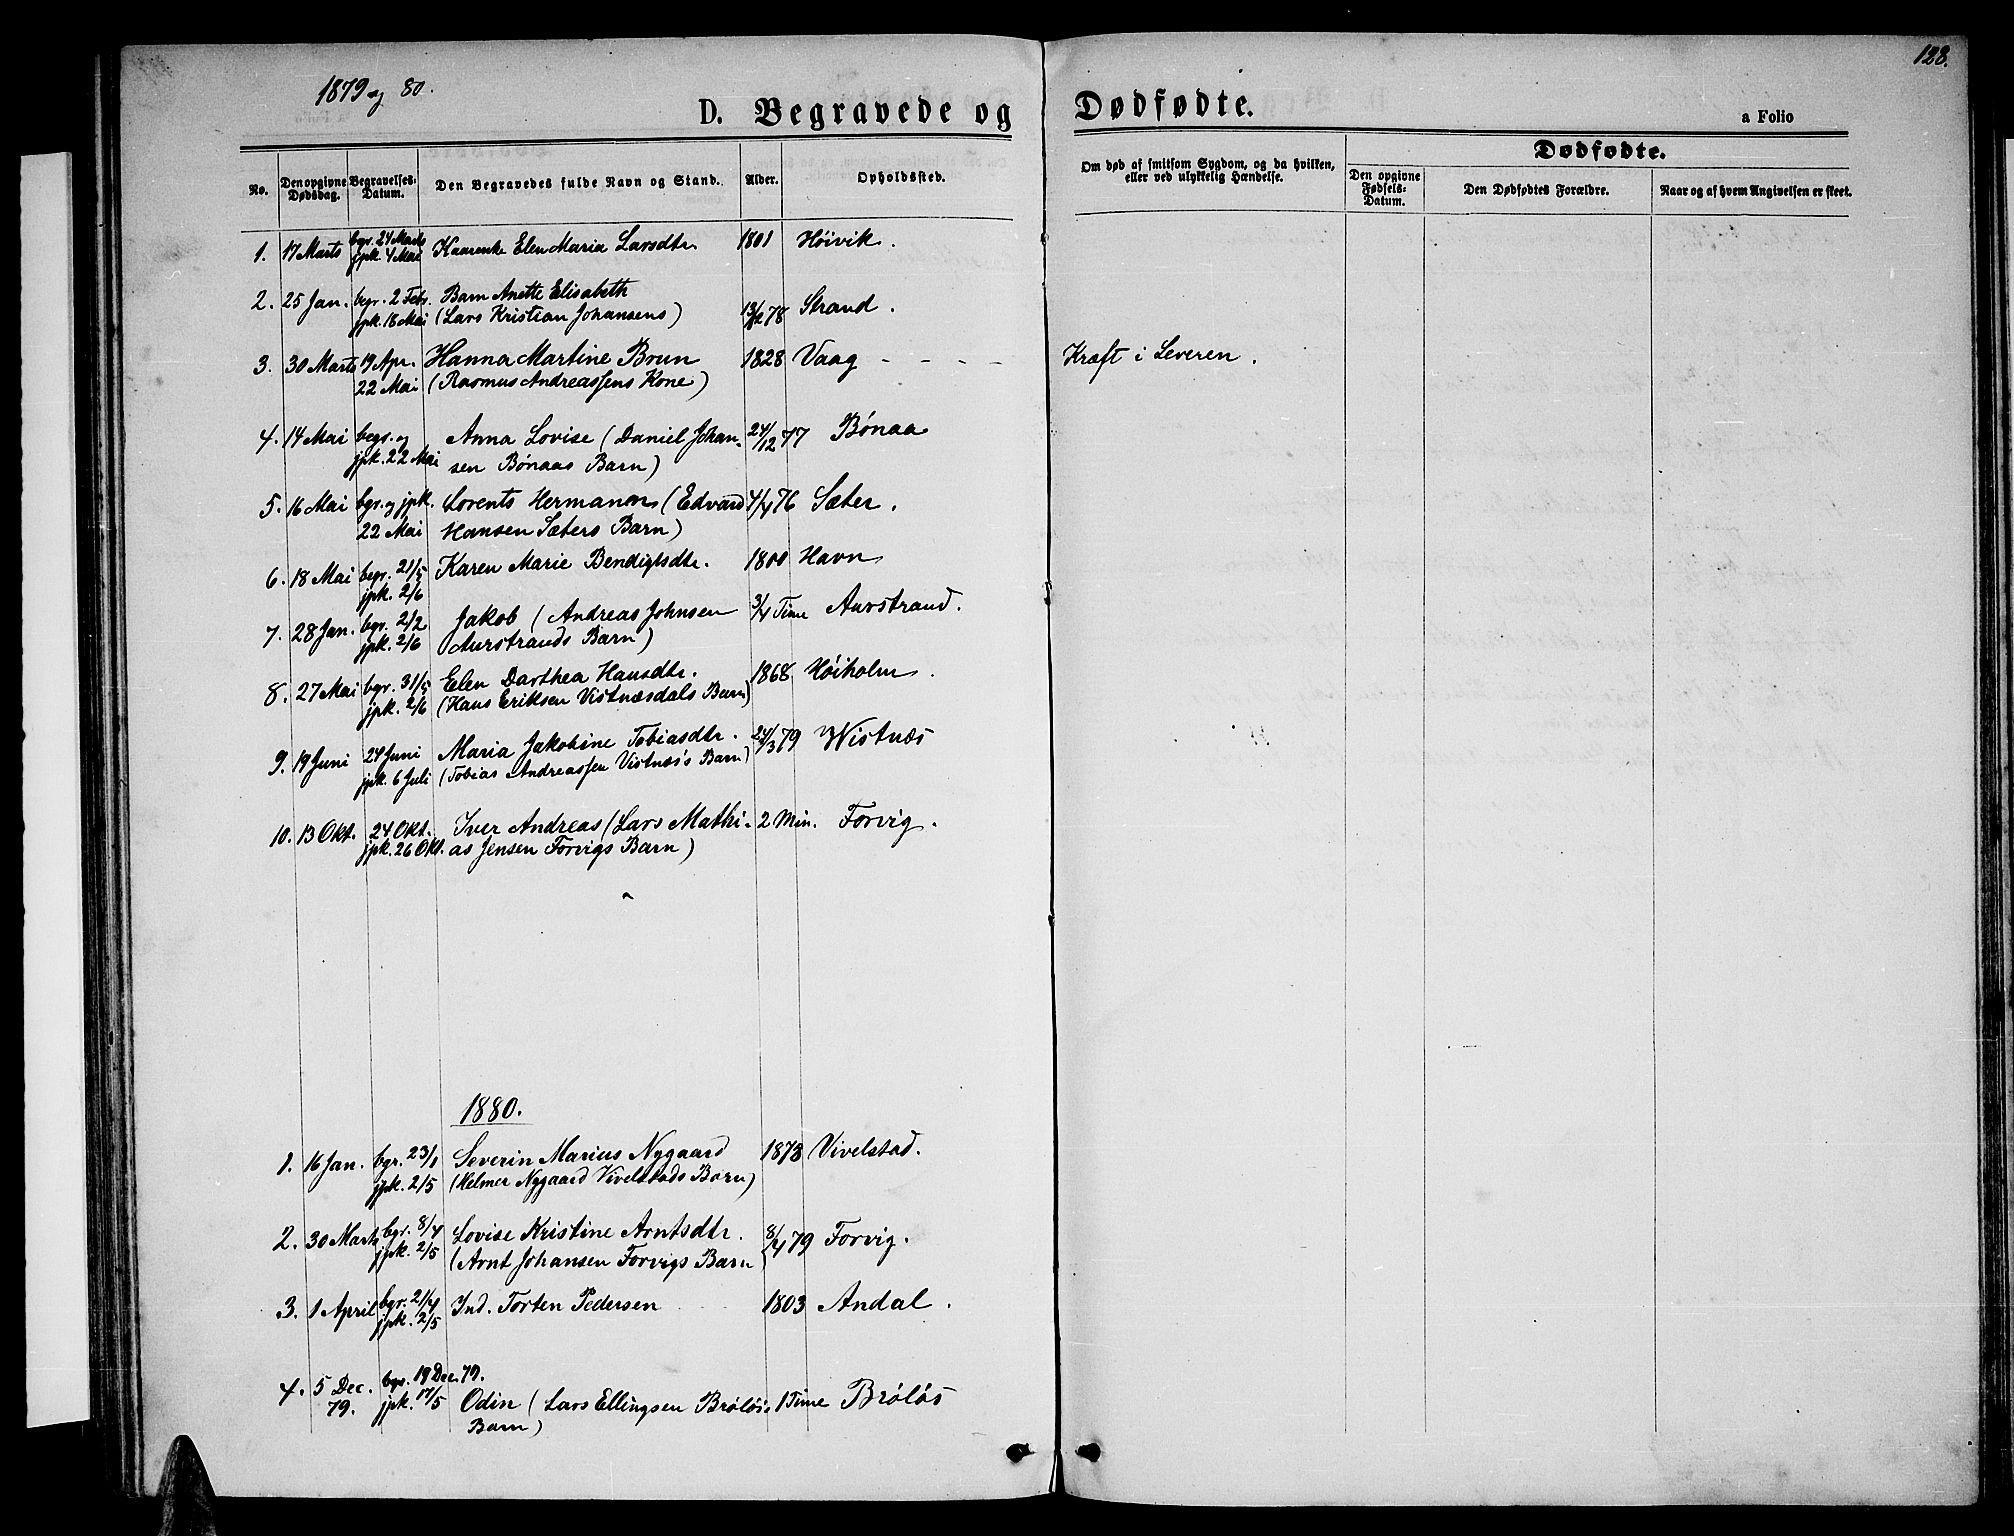 128.
1879 og 80.
D. Begravede og Dødfødte.
a Folio
No.
Den opgivne Dødsdag.
Begravelses-Datum.
Den Begravedes fulde Navn og Stand.
Alder.
Opholdssted.
Om død af smitsom Sygdom, og da hvilken, eller ved ulykkelig Hændelse.
Dødfødte.
Den opgivne Fødsels-Datum.
Den Dødfødtes Forældre.
Naar og af hvem Angivelsen er skeet.
1. 17 Marts bgr. 24 Marts Kaarenke Elen Maria Larsdtr. 1801 Høivik.
jpk. 4 Mai
2. 25 Jan. begr. 2 Febr. Barn Anette Elisabeth
jpk. 18 Mai (Lars Kristian Johansens) 78 Strand.
3. 30 Marts 19 Apr. Hanna Martine Brun 1828 Vaag - - - - Kræft i Leveren.
22 Mai (Rasmus Andreassens Kone)
4. 14 Mai begr. og Anna Lovise (Daniel Johan- 24/12 77 Bønaa
jpk. 22 Mai sen Bønaas Barn)
5. 16 Mai bgr. og jpk. Lorents Hermann (Edvard 4/4 76 Sæter.
22 Mai Hansen Sæters Barn)
6. 18 Mai begr. 21/5 Karen Marie Bendigtsdtr. 1800 Havn
jpk. 2/6
7. 28 Jan. bgr. 2/2 Jakob (Andreas Johnsen 3/4 Time Aurstrand.
jpk. 2/6 Aurstrands Barn)
8. 27 Mai bgr. 31/5 Elen Dorthea Hansdtr. 1868 Høiholm.
jpk. 2/6 (Hans Eriksen Vistnæsdals Barn)
9. 19 Juni 24 Juni Maria Jakobine Tobiasdtr. 24/3 79 Wistnæs
jpk. 6 Juli (Tobias Andreassen Vistnæs's Barn)
10. 13 Okt. 24 Okt. Iver Andreas (Lars Mathi- 2 Min. Forvig.
jpk. 26 Okt. as Jensen Forvigs Barn)
1880.
1. 16 Jan. bgr. 23/1 Severin Marius Nygaard 1878 Vivelstad.
jpk. 2/5 (Helmer Nygaard Vivelstads Barn)
2. 30 Marts bgr. 8/4 Lovise Kristine Arntsdtr. 8/4 79 Forvig.
jpk. 2/5 (Arnt Johansen Forvigs Barn
3. 1 April bgr. 21/4 Ind. Torten Pedersen 1803 Andal.
jpk. 2/5
4. 5 Dec. bgr. 19 Dec. 79.
79. jpk. 17/5 Odin (Lars Ellingsen Brøløs 1 Time Brøløs
Barn)